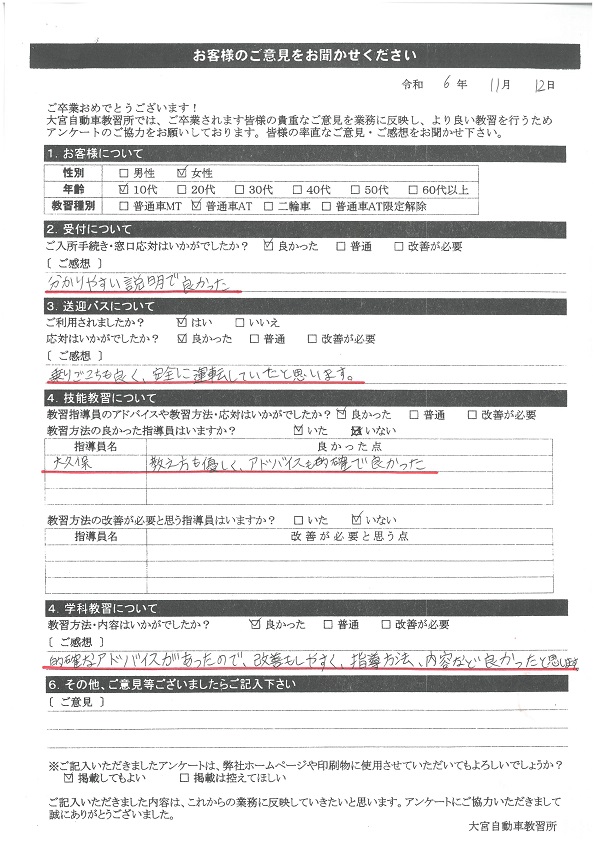 お客様のご意見をお聞かせください
令和 6 年 11月 12日
ご卒業おめでとうございます！
大宮自動車教習所では、ご卒業されます皆様の貴重なご意見を業務に反映し、より良い教習を行うため
アンケートのご協力をお願いしております。皆様の率直なご意見・ご感想をお聞かせ下さい。
1. お客様について
性別 □ 男性 ☑ 女性
年齢 ☑ 10代 □ 20代 □ 30代 □ 40代 □ 50代 □ 60代以上
教習種別 □ 普通車MT ☑ 普通車AT □ 二輪車 □ 普通車AT限定解除
2. 受付について
ご入所手続き・窓口応対はいかがでしたか？ ☑ 良かった □ 普通 □ 改善が必要
［ ご感想 ］
分かりやすい説明で良かった
3. 送迎バスについて
ご利用されましたか？ ☑ はい □ いいえ
応対はいかがでしたか？ ☑ 良かった □ 普通 □ 改善が必要
［ ご感想 ］
乗りごこちも良く、安全に運転していたと思います。
4. 技能教習について
教習指導員のアドバイスや教習方法・応対はいかがでしたか？ ☑ 良かった □ 普通 □ 改善が必要
教習方法の良かった指導員はいますか？ ☑ いた □ いない
指導員名 良かった点
大久保 教え方も優しく、アドバイスも的確で良かった
教習方法の改善が必要と思う指導員はいますか？ □ いた ☑ いない
指導員名 改善が必要と思う点
4. 学科教習について
教習方法・内容はいかがでしたか？ ☑ 良かった □ 普通 □ 改善が必要
［ ご感想 ］
的確なアドバイスがあったので、改善もしやすく、指導方法、内容など良かったと思います
6. その他、ご意見等ございましたらご記入下さい
［ ご意見 ］
※ご記入いただきましたアンケートは、弊社ホームページや印刷物に使用させていただいてもよろしいでしょうか？
☑ 掲載してもよい □ 掲載は控えてほしい
ご記入いただきました内容は、これからの業務に反映していきたいと思います。アンケートにご協力いただきまして
誠にありがとうございました。
大宮自動車教習所